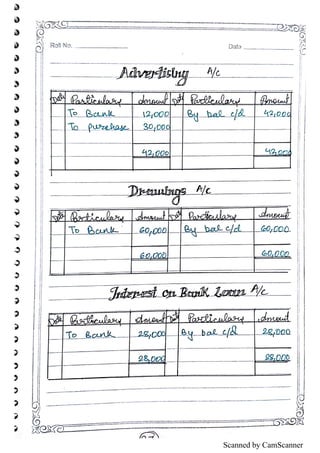 Roll No. Date
Advertising A/c
Date Particulars Amount Date Particulars Amount
To Bank 12,000 By bal c/d 42,000
To purchase 30,000
42,000 42,000
Drawings A/c
Date Particulars Amount Date Particulars Amount
To Bank 60,000 By bal c/d 60,000
60,000 60,000
Interest on Bank Loan A/c
Date Particulars Amount Date Particulars Amount
To Bank 28,000 By bal c/d 28,000
28,000 28,000
Scanned by CamScanner